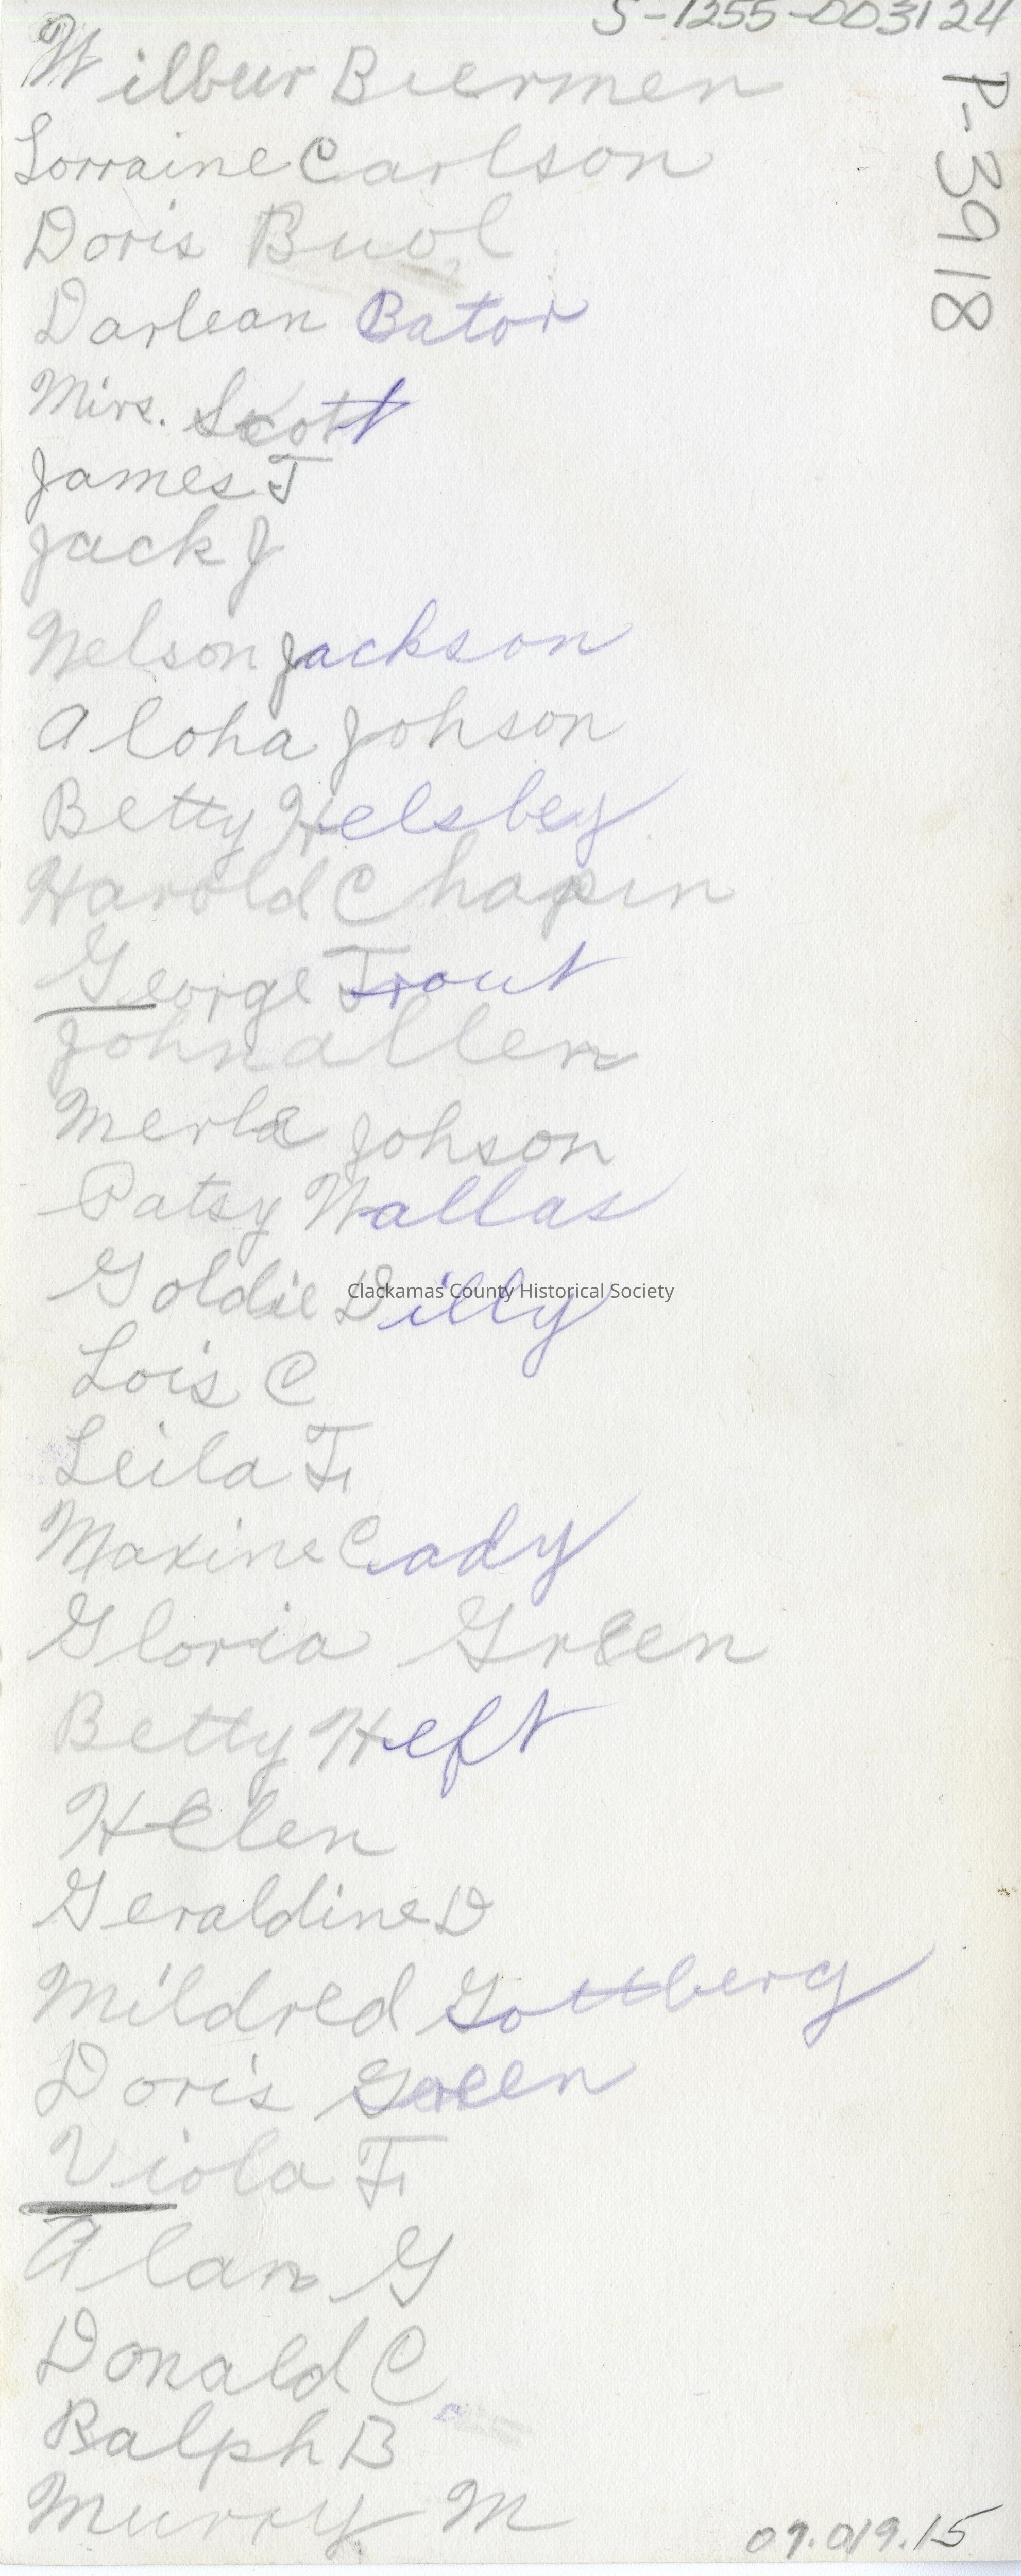 S-1255-003124
P-3918
Wilbur Biermen
Lorraine Carlson
Doris Buol
Darlean Bator
Mirs. Scott
James J
Jack J
Nelson Jackson
Aloha Johson
Betty Helsbey
Harold Chapin
George Trout
John allen
Merle Johson
Patsy Wallas
Goldie Dilly
Clackamas County Historical Society
Lois C
Leila F
Maxine Cady
Gloria Green
Betty Heft
Helen
Geraldine D
Mildred Gottberg
Doris Green
Viola F
Alan G
Donald C
Ralph B
Murry M
09.019.15